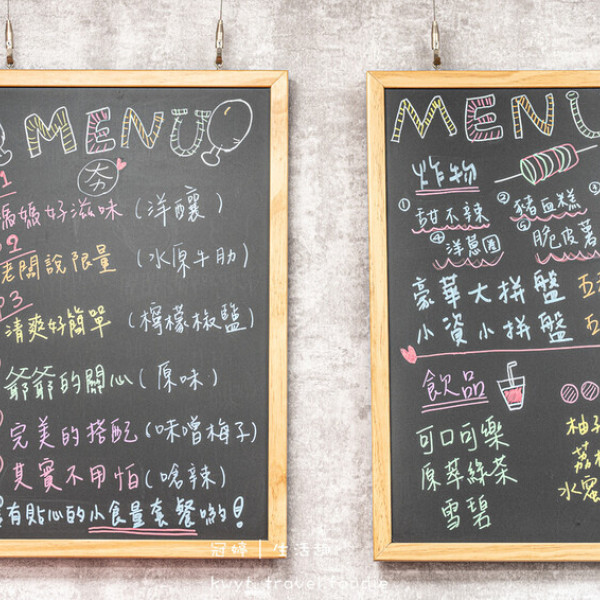 MENU
夯
1
媽媽好滋味(洋釀)
2
老闆說限量(水原牛肋)
3
清爽好簡單(檸檬椒鹽)
爺爺的關心(原味)
完美的搭配(味噌梅子)
其實不用怕(嗆辣)
有貼心的小食量套餐喲!
MENU
炸物
①甜不辣 ②豬血糕
④洋蔥圈 ⑤脆皮薯
豪華大拼盤 五
小資小拼盤 五
飲品
可口可樂 柚子
原萃綠茶 荔枝
雪碧 水蜜
冠婷 | 生活
kvvf.travel.foodie